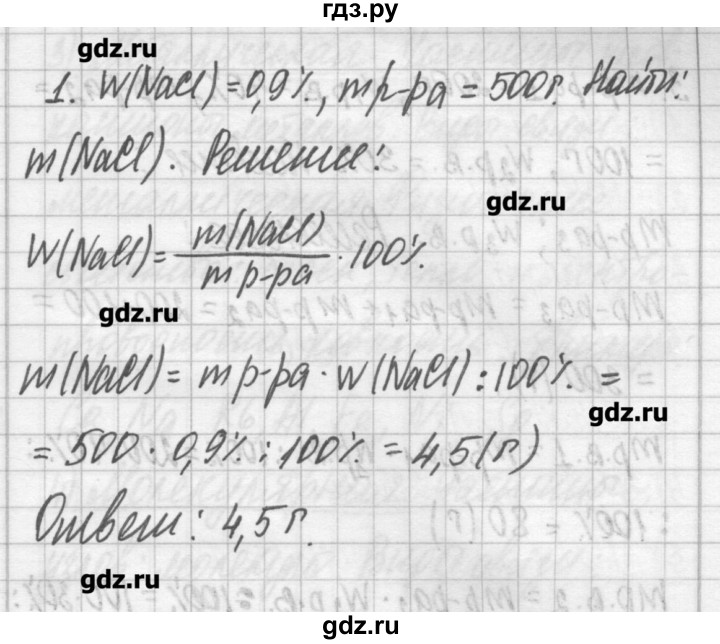 гдз.ру
gdz.ru
1. W(NaCl) = 0,9%, mр-ра = 500г. Найти:
m(NaCl). Решение:
gdz.ru
W(NaCl) = m(NaCl) / mр-ра · 100%.
gdz.ru
m(NaCl) = mр-ра · w(NaCl) : 100% =
gdz.ru
= 500 · 0,9% : 100% = 4,5 (г)
Ответ: 4,5г.
gdz.ru
gdz.ru